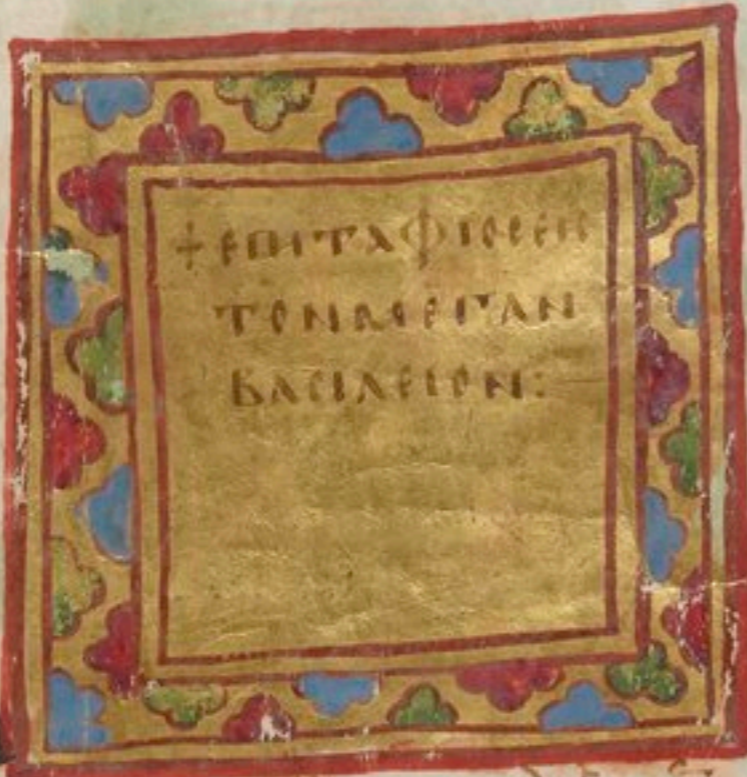 + ΕΠΙΤΑΦΙΟC ΕΙC
ΤΟΝ ΜΕΓΑΝ
ΒΑCΙΛΕΙΟΝ: